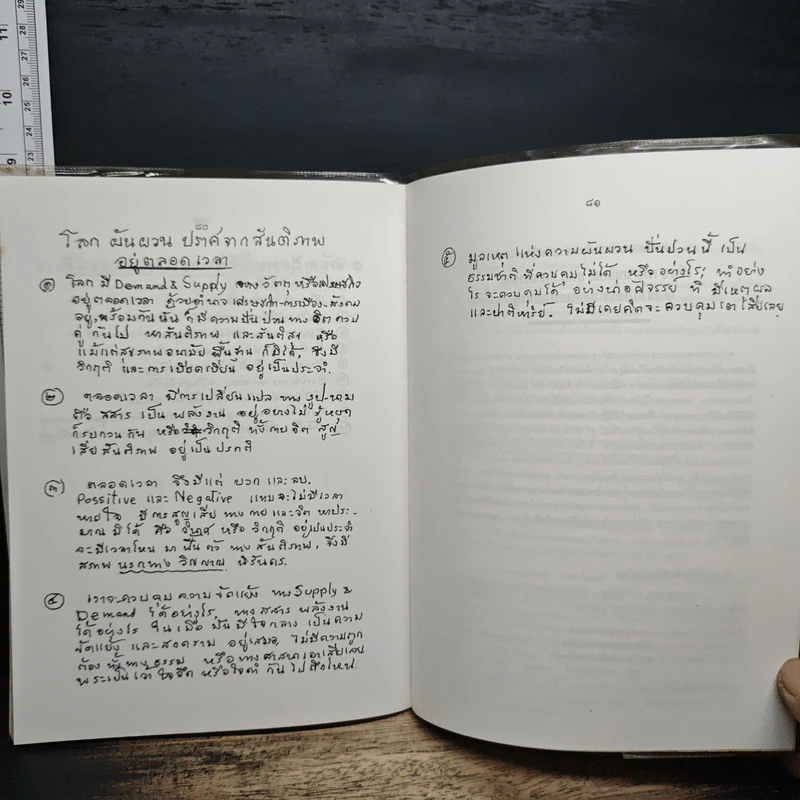 โลก ผันผวน ปราศจากสันติภาพ
อยู่ตลอดเวลา
๑ โลก มี Demand & Supply ทางวัตถุ หรือ
อยู่ตลอดเวลา ด้วยอำนาจเศรษฐกิจ-การเมือง-สังคม
อยู่, พร้อมกันนั้น ก็มีความปั่นป่วนทางจิต ควบ
คู่ กันไป หาสันติภาพ และสันติสุข หรือ
แม้แต่สุขภาพอนามัย พื้นฐาน ก็มิได้, จึงมี
วิกฤติ และการเบียดเบียน อยู่เป็นประจำ.
๒ ตลอดเวลา มีการเปลี่ยนแปลง ทาง รูป-นาม
คือ สสาร เป็น พลังงาน อยู่อย่างไม่ รู้หยุด
ก็รบกวนกัน หรือ วิกฤติ ทั้งกาย จิต สูญ
เสียสันติภาพ อยู่เป็นปรกติ
๓ ตลอดเวลา จึงมีแต่ บวก และ ลบ.
Possitive และ Negative แทบจะไม่มีเวลา
หายใจ มีการสูญเสีย ทางกายและจิต หาประ-
มาณมิได้ คือ วินาศ หรือ วิกฤติ อยู่เป็นประจำ
จะมีเวลาไหน มาฟื้นตัว ทางสันติภาพ, จึงมี
สภาพ นรกทางวิญญาณ นิรันดร.
๔ เราจะควบคุม ความขัดแย้ง ทาง Supply &
Demand ได้อย่างไร, ทางสสาร พลังงาน
ได้อย่างไร ในเมื่อ มันมีใจกลาง เป็นความ
ขัดแย้ง และสงคราม อยู่เสมอ, ไม่มีความถูก
ต้อง ทั้งทางธรรม หรือทางศาสนาเอาเสียเลย
พระเป็นเจ้า ใจจืด หรือใจดำ กันไปถึงไหน.
๘๑
๕ มูลเหตุ แห่งความผันผวน ปั่นป่วนนี้ เป็น
ธรรมชาติ ที่ควบคุมไม่ได้ หรือ อย่างไร; ทำอย่าง
ไร จะควบคุมได้ อย่างน่าอัศจรรย์ ที่ มีเหตุผล
และปาฏิหาริย์. ไม่มีใครคิดจะ ควบคุม เอาเสียเลย